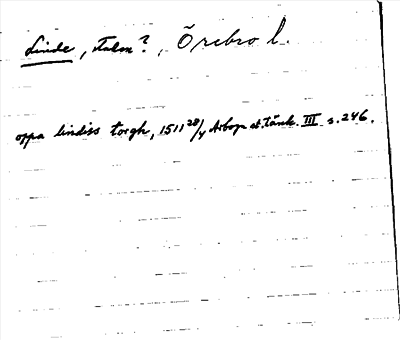 Linde, stad?, Örebro l.
oppa lindiss torgh, 1511 28/4 Arboga st. tänk. III s. 246.